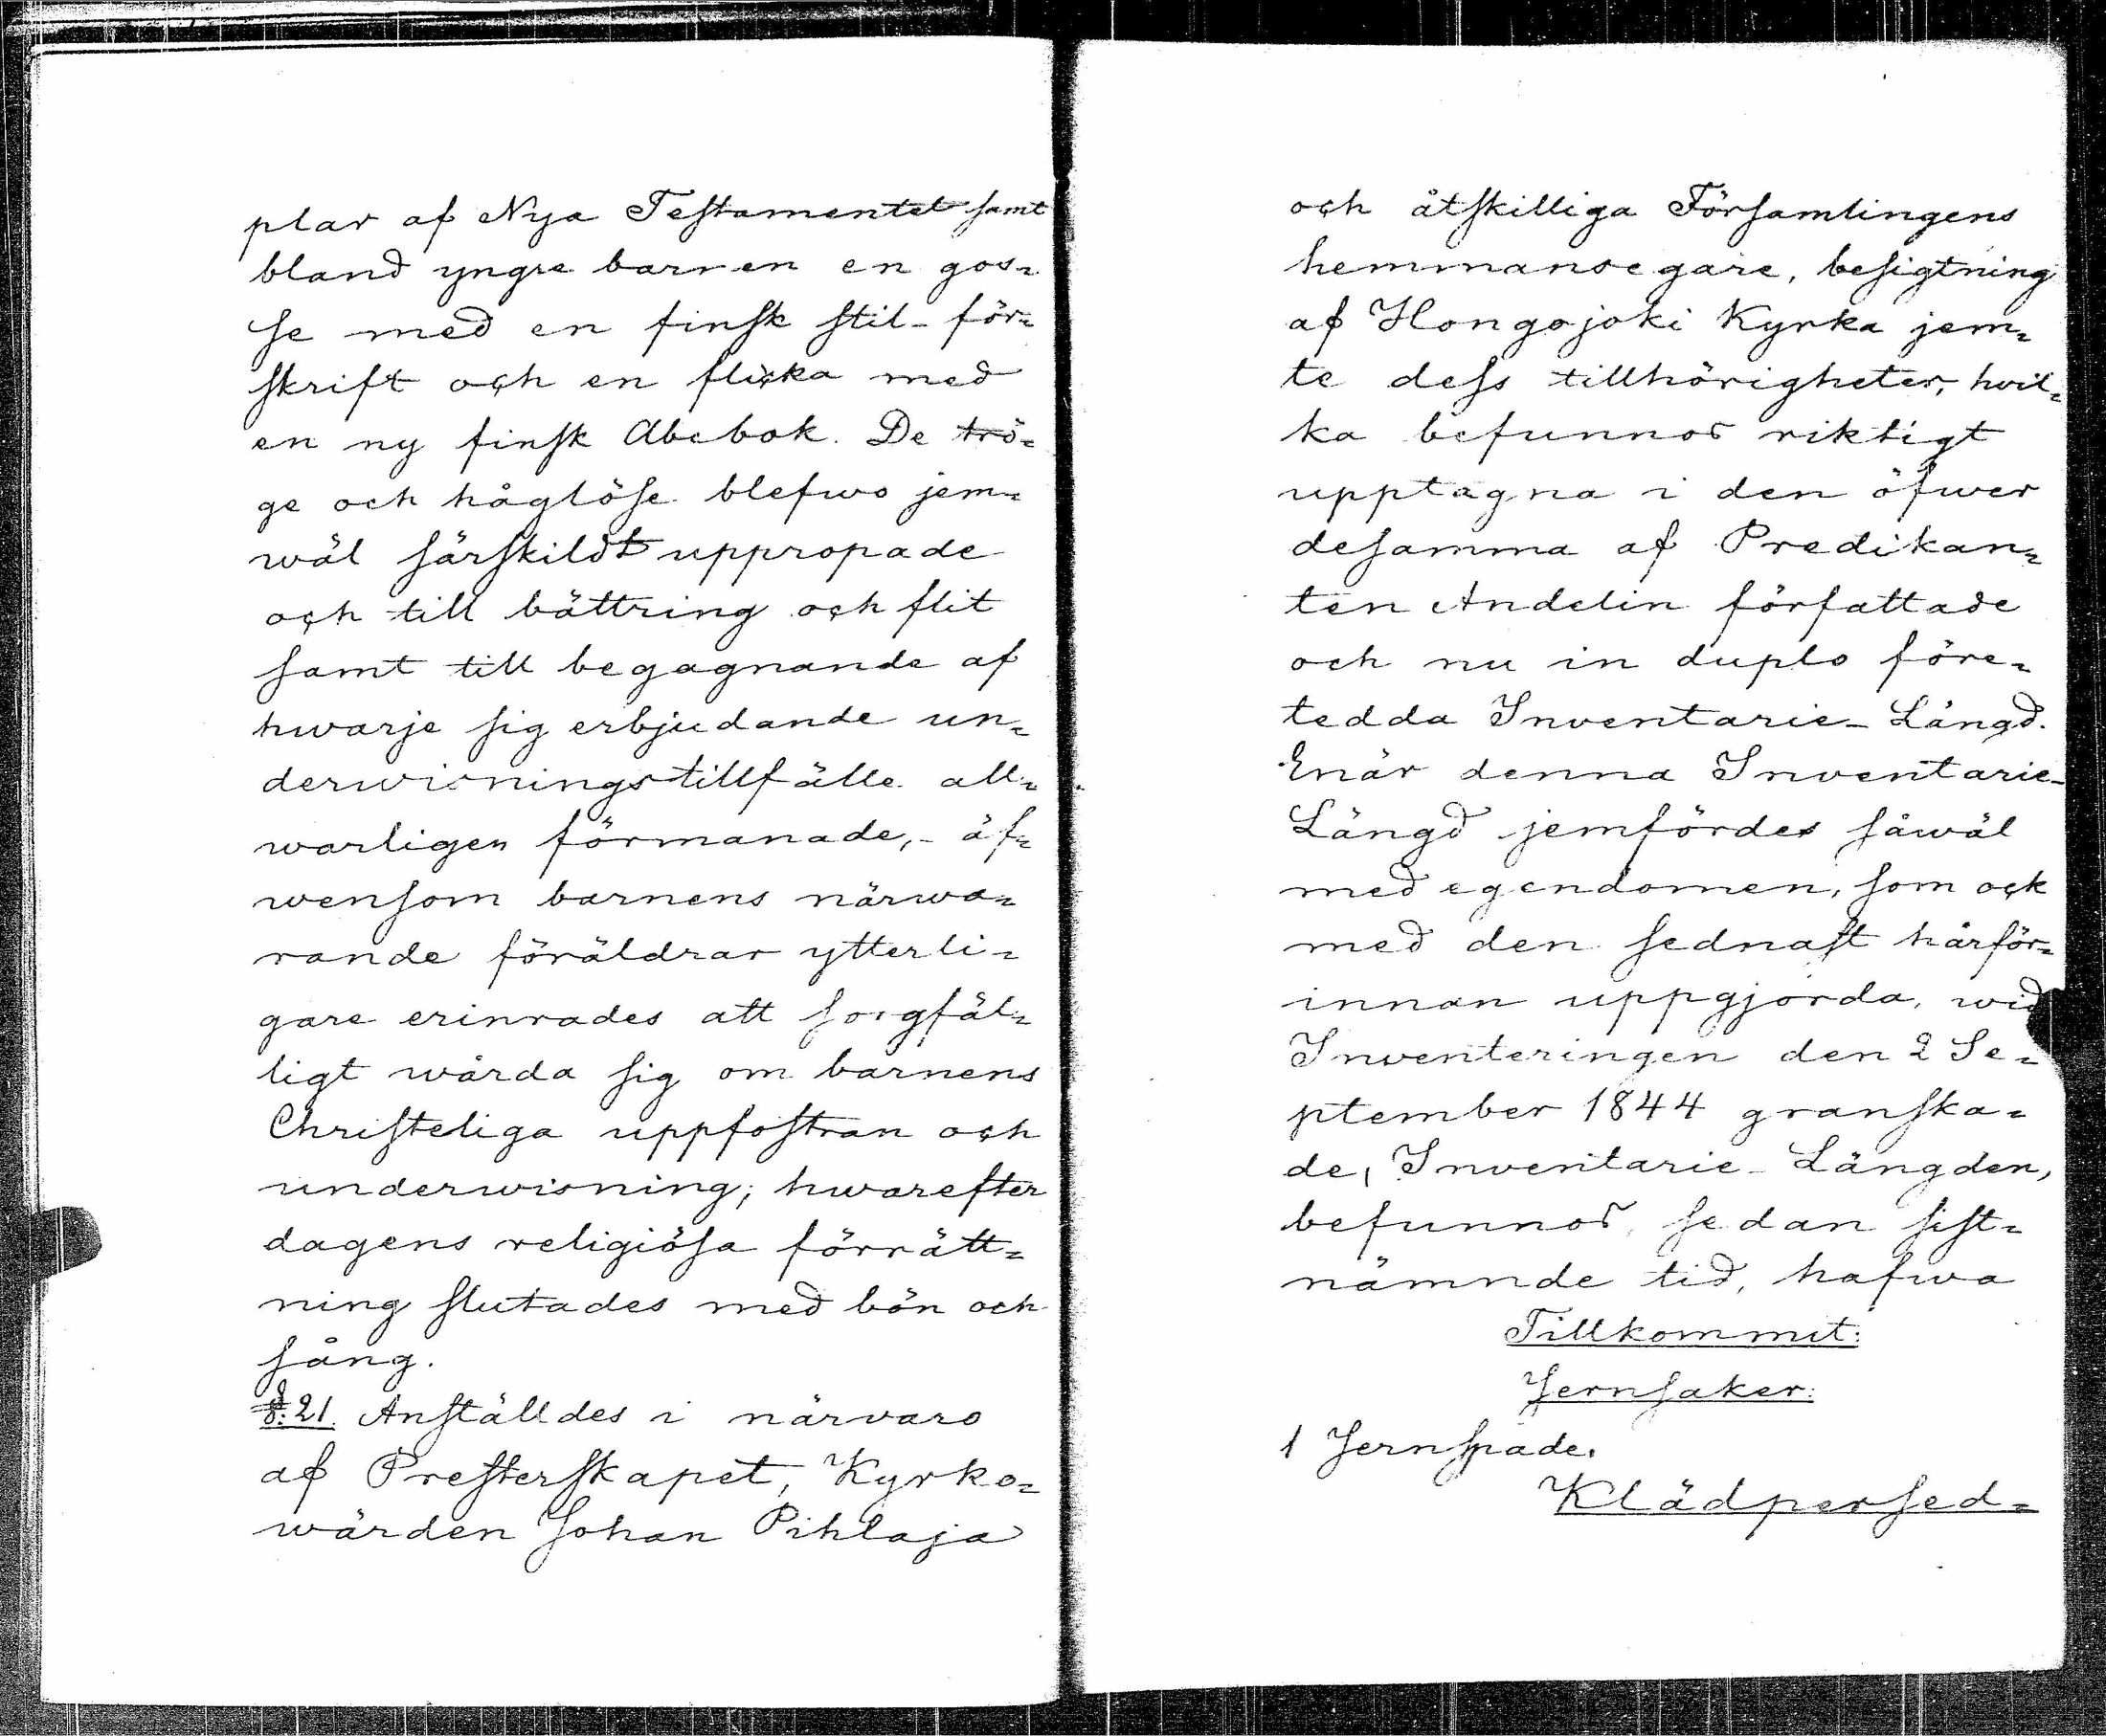 plar af Nya Testamentet samt
bland yngre barnen en gos=
se med en finsk stil-för=
skrift och en flicka med
en ny finsk Abcbok. De trö=
ge och håglöse blefwo jem=
wäl särskildt uppropade
och till bättring och flit
samt till begagnande af
hwarje sig erbjudande un=
derwisningstillfälle all=
warligen förmanade,- äf=
wensom barnens närwa=
rande föräldrar ytterli=
gare erinrades att sorgfäl=
ligt wårda sig om barnens
Christeliga uppfostran och
underwisning; hwarefter
dagens religiösa förrätt=
ning slutades med bön och
sång.
§: 21. Anställdes i närvaro
af Presterskapet, Kyrko=
wärden Johan Pihlaja
och åtskilliga Församlingens
hemmansegare, besigtning
af Hongojoki Kyrka jem=
te dess tillhörigheter, hvil=
ka befunnos riktigt
upptagna i den öfwer
desamma af Predikan=
ten Andelin författade
och nu in duplo före=
tedda Inventarie-Längd.
Enär denna Inventarie-
Längd jemfördes såwäl
med egendomen, som ock
med den sednast härför=
innan uppgjorda, wid
Inventeringen den 2 Se=
ptember 1844 granska=
de, Inventarie-Längden,
befunnos, sedan sist=
nämnde tid, hafwa
Tillkommit:
Jernsaker:
1 Jernspade.
Klädpersed=